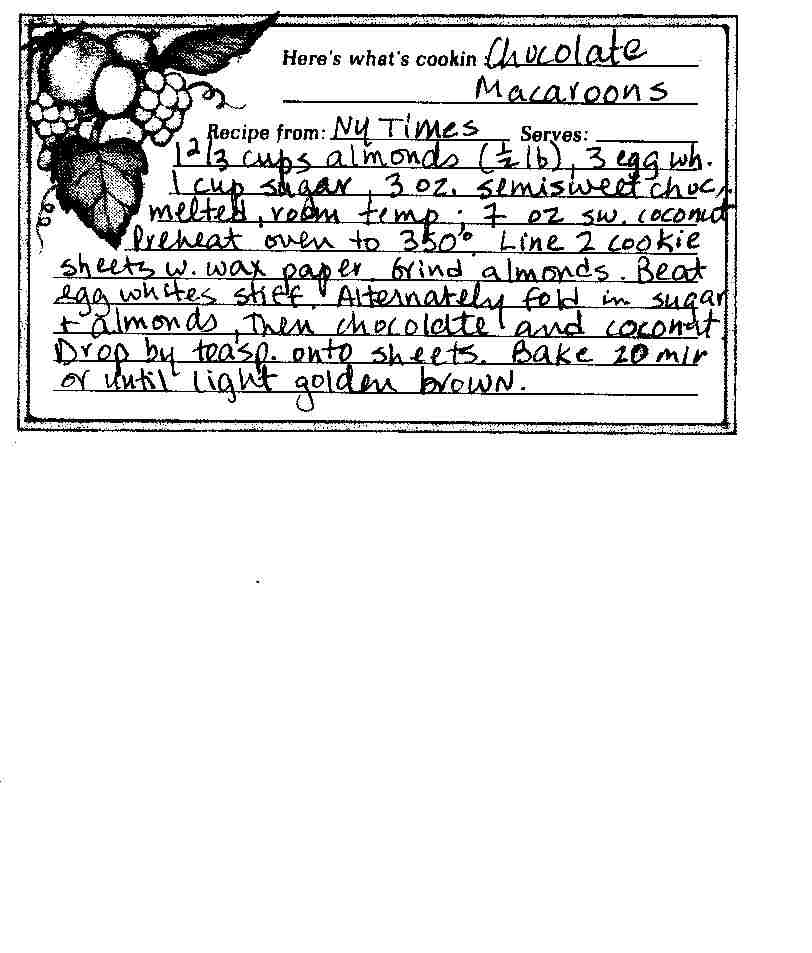 Here's what's cookin Chocolate
Macaroons
Recipe from: NY Times Serves:
1 2/3 cups almonds (½ lb), 3 egg wh.
1 cup sugar, 3 oz. semisweet choc,
melted, room temp; 7 oz sw. coconut
Preheat oven to 350°. Line 2 cookie
sheets w. wax paper. Grind almonds. Beat
egg whites stiff. Alternately fold in sugar
+ almonds, then chocolate and coconut.
Drop by teasp. onto sheets. Bake 20 min
or until light golden brown.